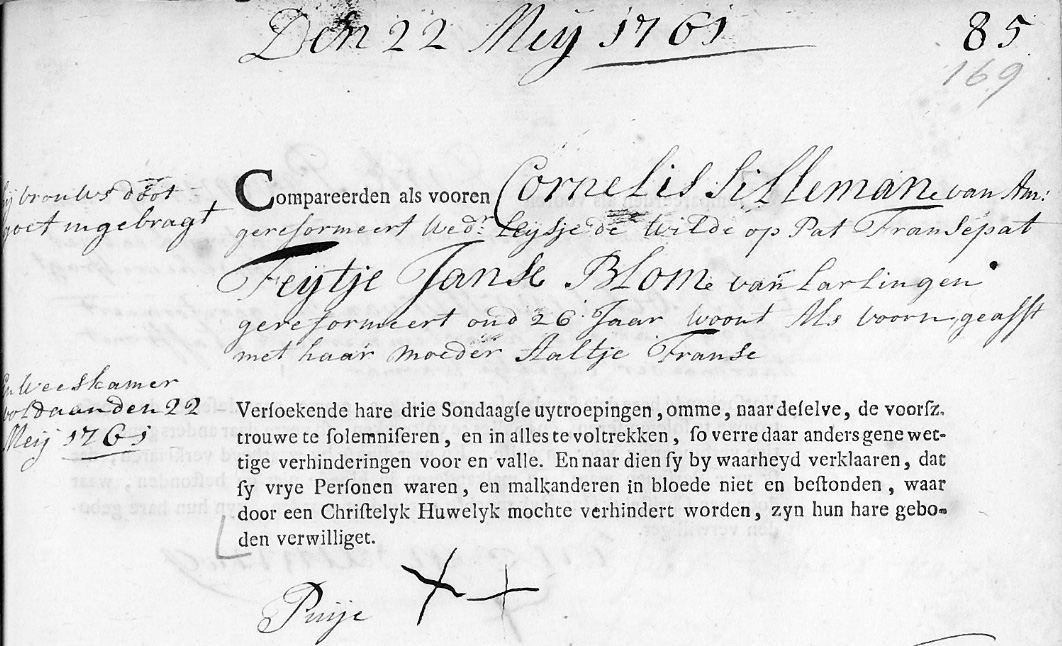 Den 22 Meij 1761 85
169
Compareerden als vooren Cornelis Silleman van Am:
gereformeert Wedr: Leijsje de Wilde op Pat Fransepat
Feijtje Janse Blom van Larlingen
gereformeert oud 26 Jaar woont Als voorn, geasst
met haar moeder Aaltje Franse
vrouws doot
goet ingebragt
Weeskamer
voldaan den 22
Meij 1761
Versoekende hare drie Sondaagse uytroepingen, omme, naar deselve, de voorsz.
trouwe te solemniseren, en in alles te voltrekken, so verre daar anders gene wet-
tige verhinderingen voor en valle. En naar dien sy by waarheyd verklaaren, dat
sy vrye Personen waren, en malkanderen in bloede niet en bestonden, waar
door een Christelyk Huwelyk mochte verhindert worden, zyn hun hare gebo-
den verwilliget.
Puije